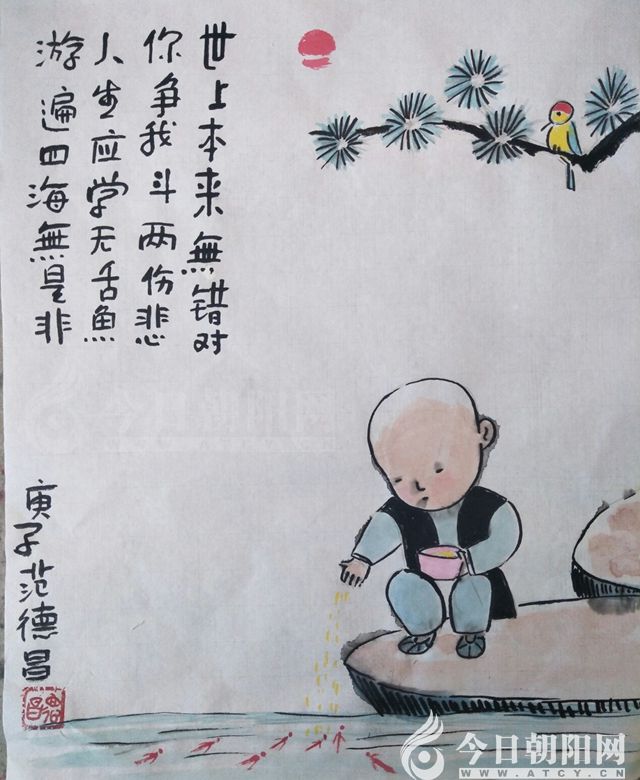 世上本来無错对
你争我斗两伤悲
人生应学无舌鱼
游遍四海無是非
庚子范德昌
今日朝阳网
今日朝阳网
WWW.ATCY.CN